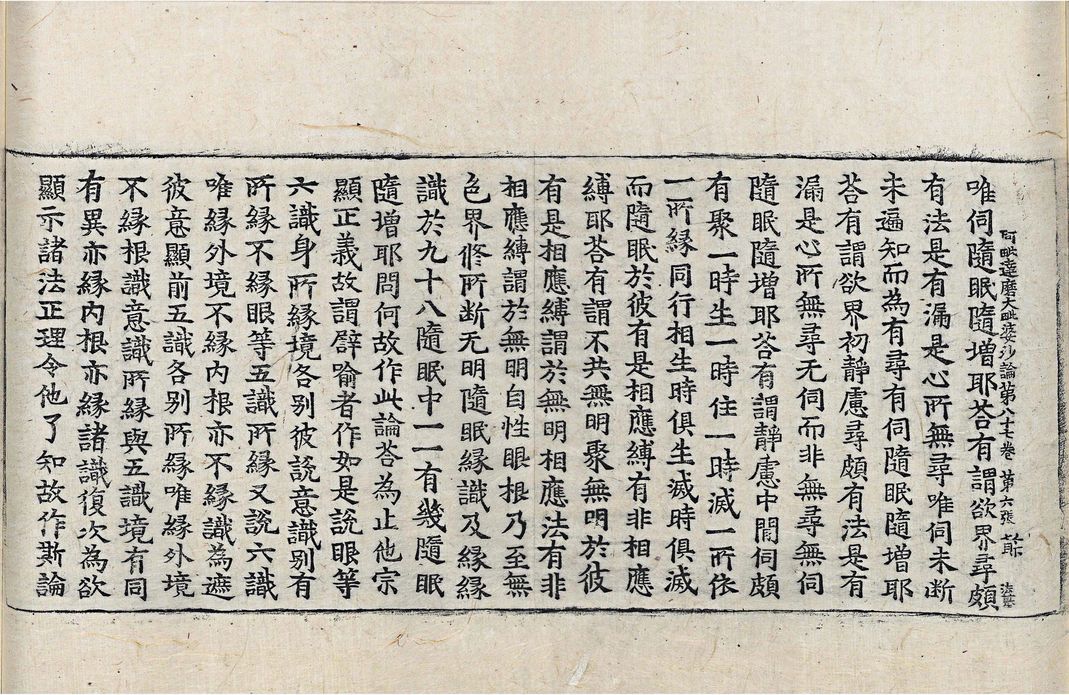 阿毗達磨大毗婆沙論第八十七卷 第六張
唯伺隨眠隨增耶荅有謂欲界尋頗
有法是有漏是心所無尋唯伺未断
未遍知而為有尋有伺隨眠隨增耶
荅有謂欲界初静慮尋頗有法是有
漏是心所無尋无伺而非無尋無伺
隨眠隨增耶荅有謂静慮中閒伺頗
有聚一時生一時住一時滅一所依
一所緣同行相生時俱生滅時俱滅
而隨眠於彼有是相應縛有非相應
縛耶荅有謂不共無明聚無明於彼
有是相應縛謂於無明相應法有非
相應縛謂於無明自性眼根乃至無
色界修所断无明隨眠緣識及緣緣
識於九十八隨眠中一一有幾隨眠
隨增耶問何故作此論荅為止他宗
顯正義故謂譬喻者作如是說眼等
六識身所緣境各別彼說意識別有
所緣不緣眼等五識所緣又說六識
唯緣外境不緣内根亦不緣識為遮
彼意顯前五識各別所緣唯緣外境
不緣根識意識所緣與五識境有同
有異亦緣内根亦緣諸識復次為欲
顯示諸法正理令他了知故作斯論